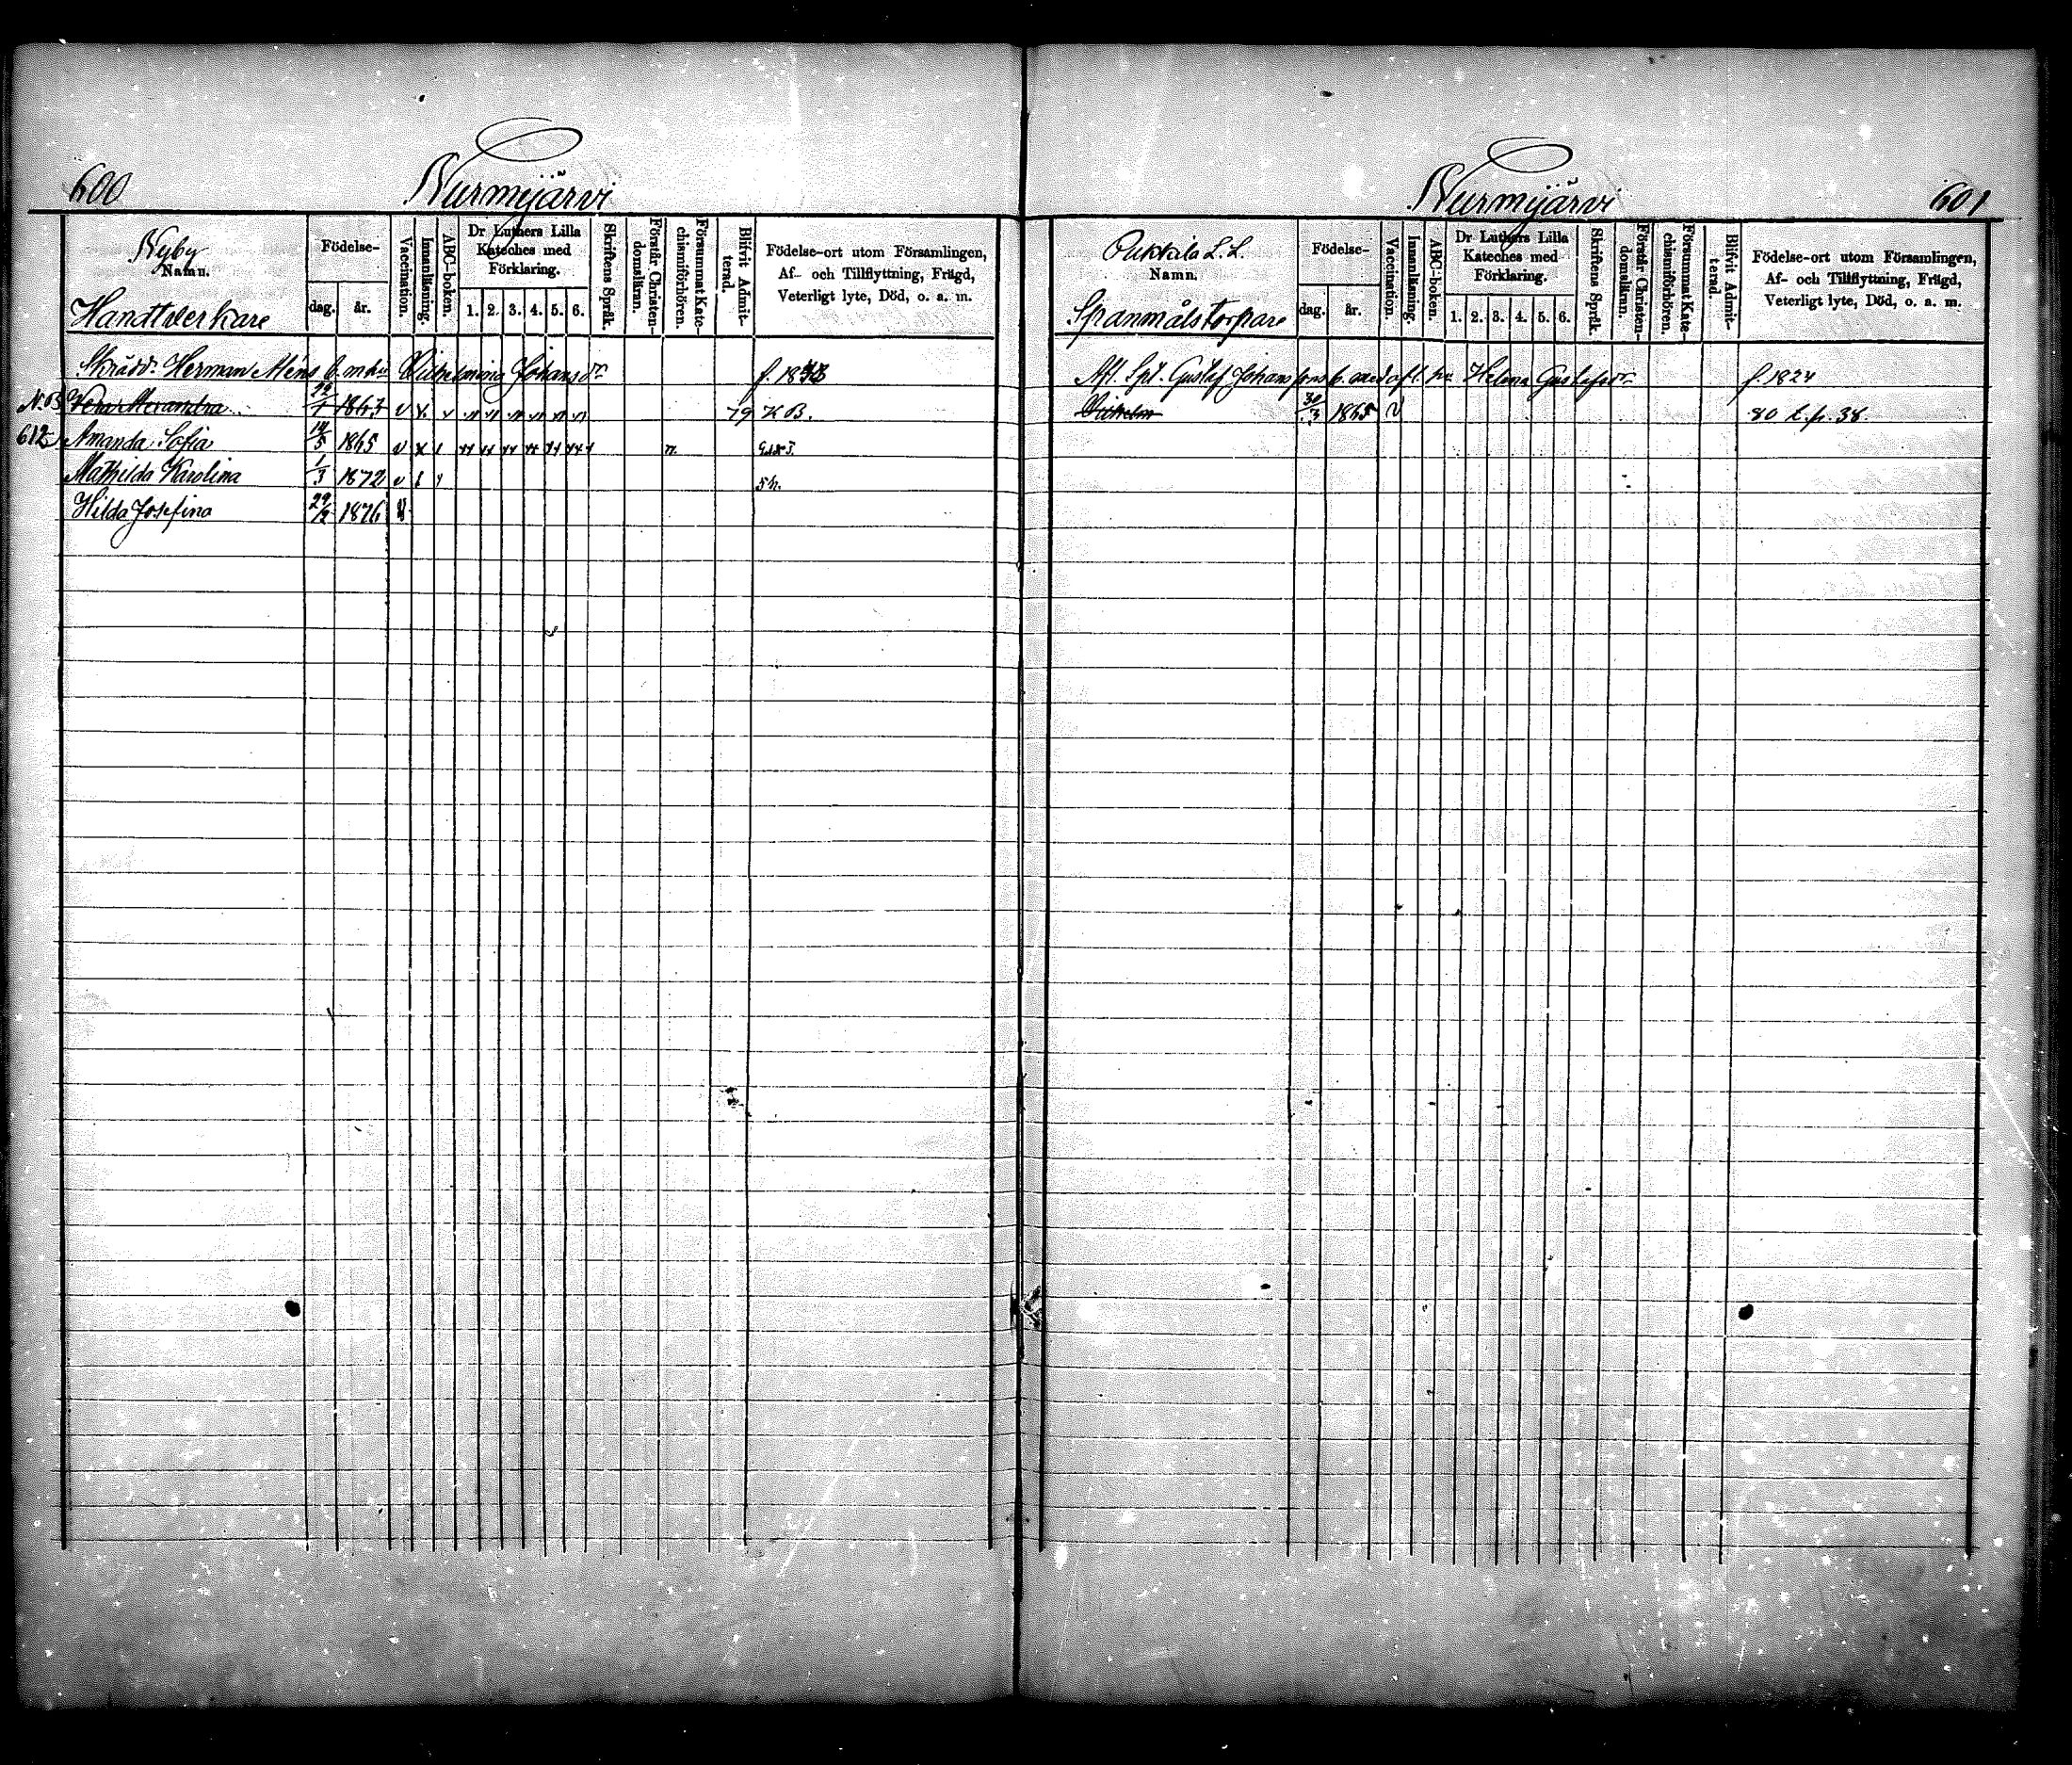 600
Nurmijärvi
Nyby
Namn.
Handtverkare
Födelse-
dag. år.
Vaccination.
Innanläsning.
ABC-boken.
Dr Luthers Lilla
Kateches med
Förklaring.
1. 2. 3. 4. 5. 6.
Skriftens Språk.
Förstår Christen-
domsläran.
Försummat Kate-
chismiförhören.
Blifvit Admit-
terad.
Födelse-ort utom Församlingen,
Af- och Tillflyttning, Frägd,
Veterligt lyte, Död, o. a. m.
Skrädd. Herman b. m. hu Vilhelmina Johansdr f. 18
N.B. Alexandra 1863 79 K B.
612 Amanda Sofia 14/5 1865
Mathilda Karolina 1/3 1872
Hilda Josefina 29/12 1876
Nurmijärvi
601
Pukkila L. L.
Namn.
Spanmålstorpare
Födelse-
dag. år.
Vaccination.
Innanläsning.
ABC-boken.
Dr Luthers Lilla
Kateches med
Förklaring.
1. 2. 3. 4. 5. 6.
Skriftens Språk.
Förstår Christen-
domsläran.
Försummat Kate-
chismiförhören.
Blifvit Admit-
terad.
Födelse-ort utom Församlingen,
Af- och Tillflyttning, Frägd,
Veterligt lyte, Död, o. a. m.
Afl. Spt. Gustaf Johanssons b. med afl. hu Helena Gustafsdr f. 1824
Vilhelm 30/3 1865 v 80 l. p. 38.